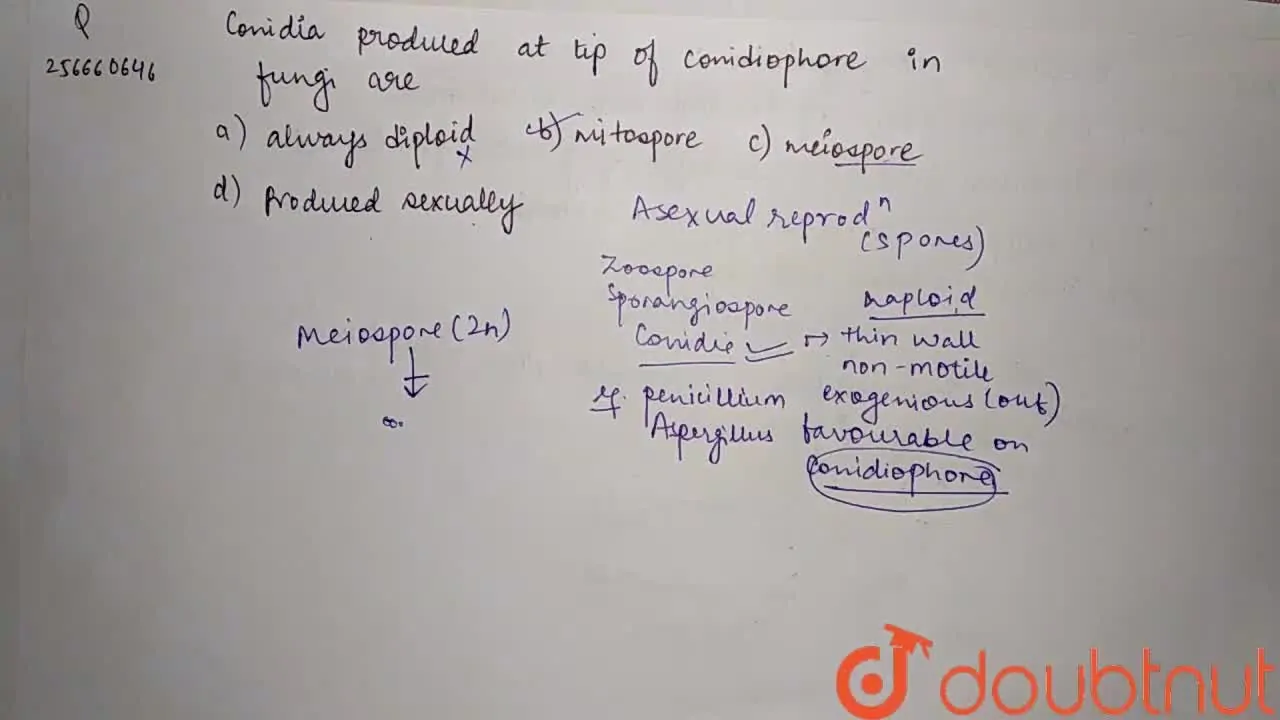 Q
256660646
Conidia produced at tip of conidiophore in
fungi are
a) always diploid b) mitospore c) meiospore
x
d) Produced sexually
Asexual reprodⁿ
(spores)
Zoospore
Sporangiospore haploid
Meiospore (2n)
Conidie → thin wall
non-motile
eg. penicillium exogenious (out)
Aspergillus favourable on
conidiophore
doubtnut